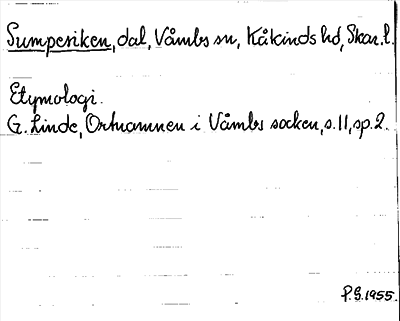 Sumperiken, dal, Våmbs sn, Kåkinds hd, Skar. l.
Etymologi.
G. Linde, Ortnamnen i Våmbs socken, s. 11, sp. 2.
P.G. 1955.